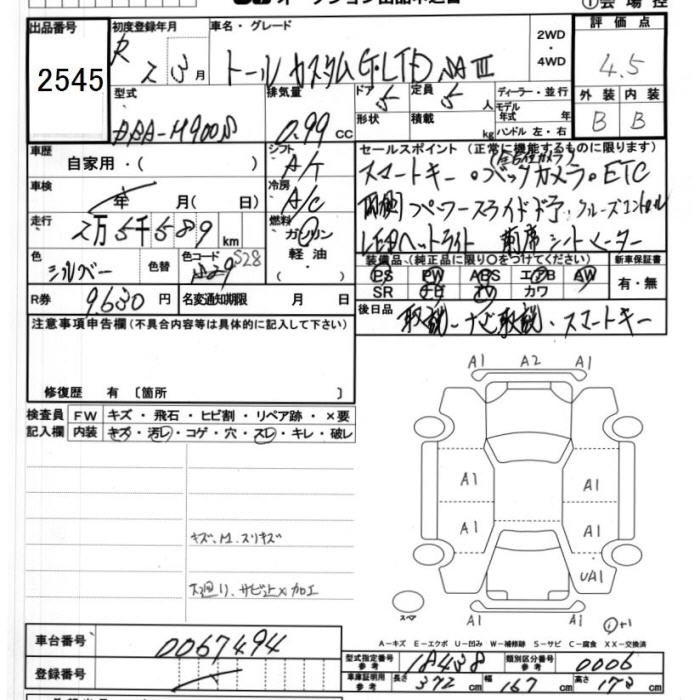 ①会場控
出品番号 初度登録年月 車名・グレード 2WD ・ 4WD 評価点
2545 R 2年3月 トールカスタムG-LTD SAⅢ 4.5
型式 排気量 ドア 定員 ディーラー・並行 外装 内装
DBA-M900S 0.99 CC 5 5 人 モデル年式 年 B B
形状 積載 kg ハンドル 左・右
車歴 シフト セールスポイント (正常に機能するものに限ります)
自家用・( ) A/T スマートキー・バックカメラ・ETC
車検 年 月( 日) 冷房 A/C 両側パワースライドドア、クルーズコントロール
走行 2万5千589km 燃料 ガソリン LEDヘッドライト 前席シートヒーター
軽油 ( )
色 シルバー 色替 色コード S28 装備品 (純正品に限り○をつけてください) 新車保証書
PS PW ABS エアB AW 有・無
SR ナビ カワ
R券 9630 円 名変通知期限 月 日 後日品 取説・ナビ取説・スマートキー
注意事項申告欄 (不具合内容等は具体的に記入して下さい)
修復歴 有 〔箇所 〕
A1 A2 A1
検査員 FW キズ・飛石・ヒビ割・リペア跡・×要
記入欄 内装 キズ・汚レ・コゲ・穴・スレ・キレ・破レ
A1 A1
A1 A1
キズ、スリキズ
UA1
下廻り、サビ止メ加工
スペア
A−キズ E−エクボ U−凹み W−補修跡 S−サビ C−腐食 XX−交換済
車台番号 0067494
型式指定番号 参考 18438 類別区分番号 参考 0006
登録番号 車庫証明用 参考 長さ 372 cm 幅 167 cm 高さ 173 cm